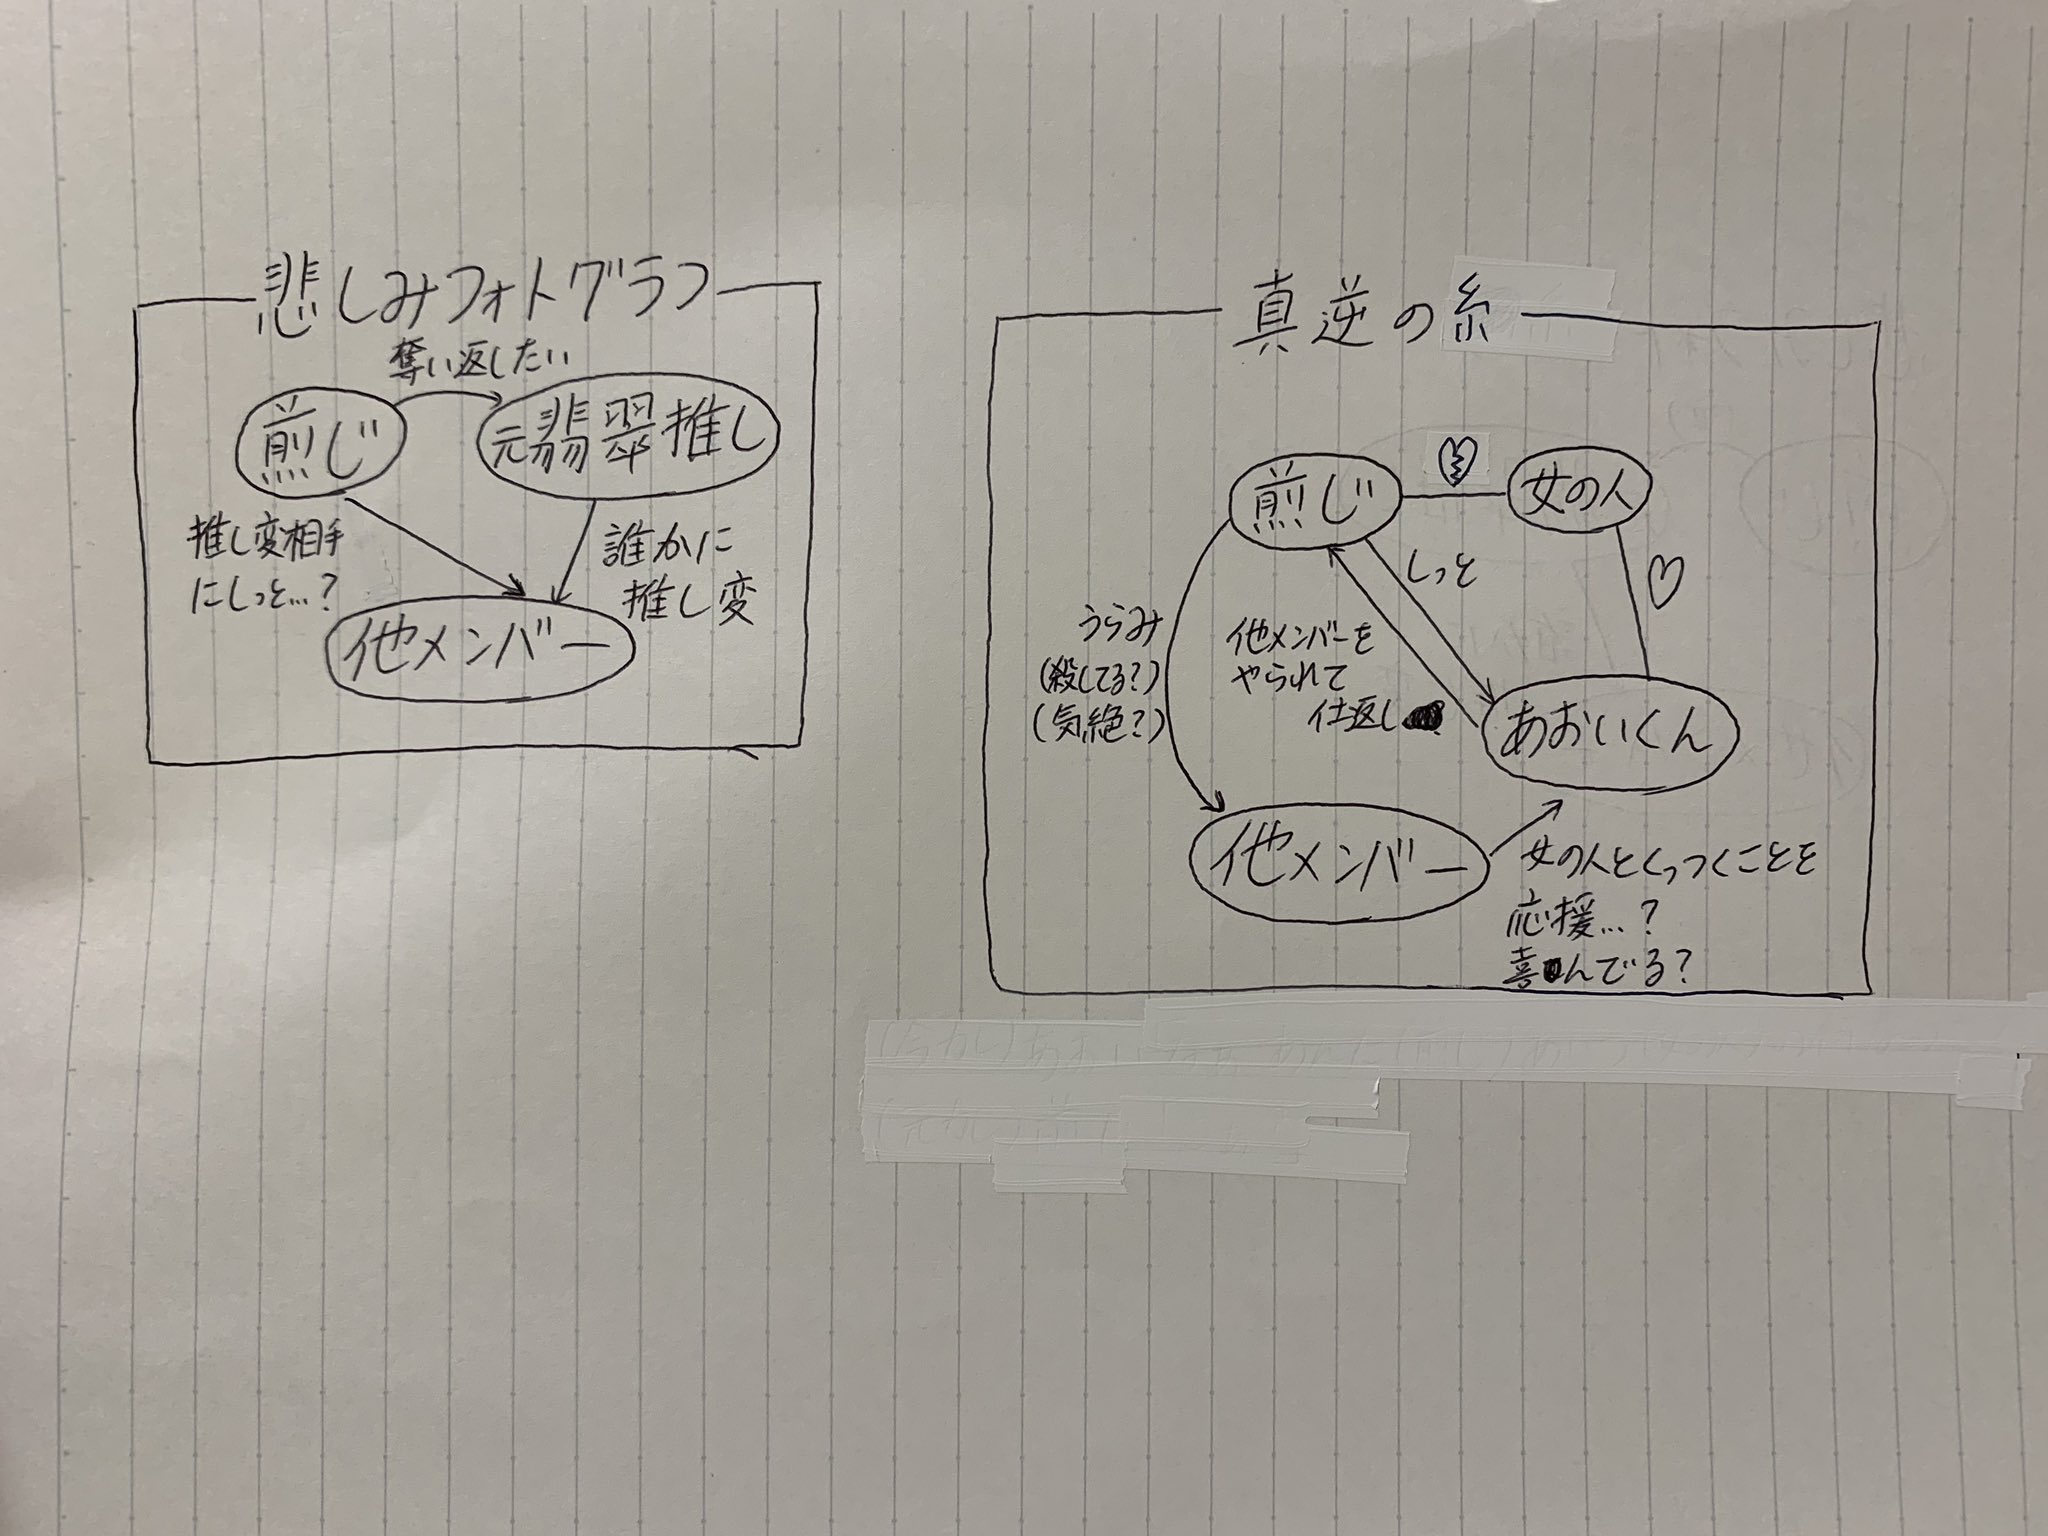 悲しみフォトグラフ
奪い返したい
煎じ
元翡翠推し
推し変相手
にしっと…?
誰かに
推し変
他メンバー
真逆の糸
煎じ
女の人
しっと
うらみ
(殺してる?)
(気絶?)
他メンバーを
やられて
仕返し
あおいくん
他メンバー
女の人とくっつくことを
応援…?
喜んでる?